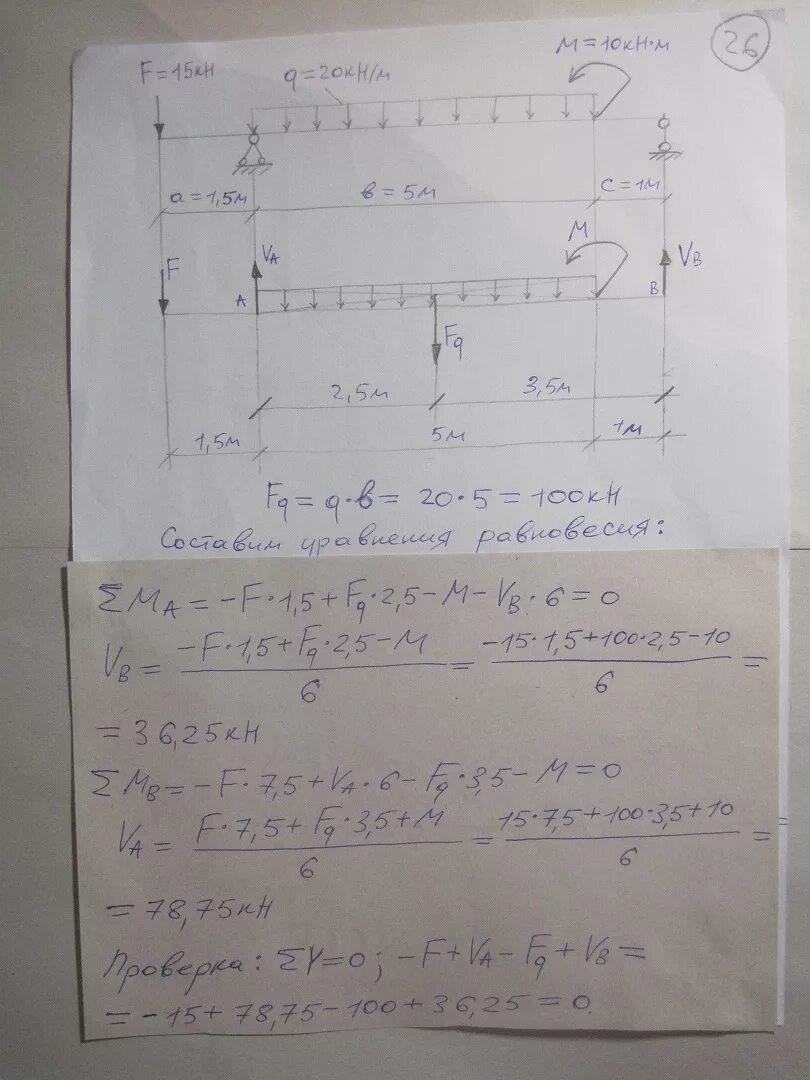 26
M=10кН·м
F=15кН
q=20кН/м
a=1,5м
в=5м
c=1м
M
F
VA
VB
A
B
Fq
2,5м
3,5м
1,5м
5м
1м
Fq=q·в=20·5=100кН
Составим уравнения равновесия:
ΣMA=-F·1,5+Fq·2,5-M-VB·6=0
VB=(-F·1,5+Fq·2,5-M)/6=(-15·1,5+100·2,5-10)/6=
=36,25кН
ΣMB=-F·7,5+VA·6-Fq·3,5-M=0
VA=(F·7,5+Fq·3,5+M)/6=(15·7,5+100·3,5+10)/6=
=78,75кН
Проверка: ΣY=0; -F+VA-Fq+VB=
=-15+78,75-100+36,25=0